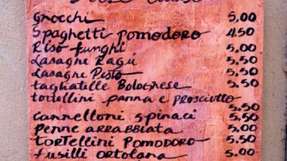 gnocchi 5,00
Spaghetti pomodoro 4,50
Riso funghi 5,00
Lasagne Ragù 5,50
Lasagne Pesto 5,50
tagliatelle Bolognese 5,50
tortellini panna e prosciutto 5,50
cannelloni spinaci 5,50
Penne arrabbiata 5,00
tortellini Pomodoro 5,50
fusilli ortolana 5,00